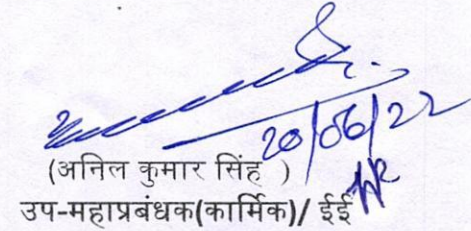 20/06/22
(अनिल कुमार सिंह )
उप-महाप्रबंधक(कार्मिक)/ ईई